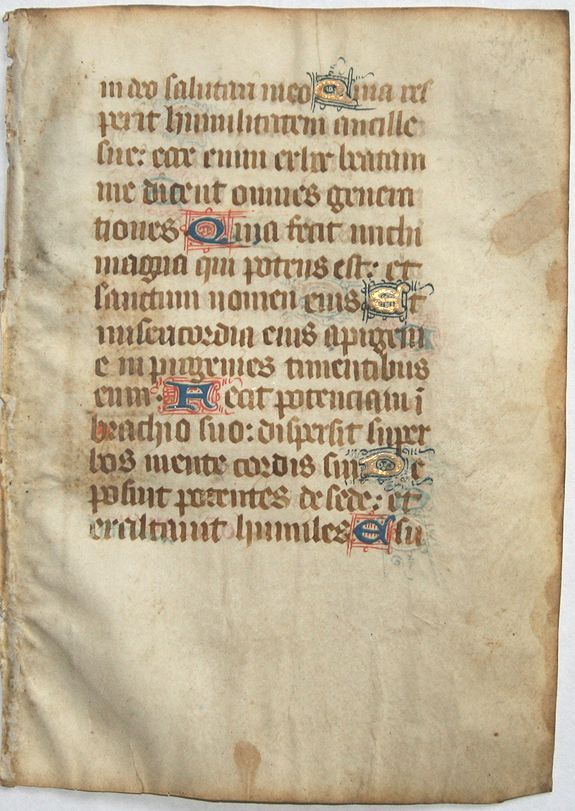 in deo salutari meo Quia res
perit humilitatem ancille
sue: ecce enim ex hoc beatam
me dicent omnes genera
tiones Quia fecit michi
magna qui potens est: et
sanctum nomen eius Et
misericordia eius a progeni
e in progenies timentibus
eum: Fecit potenciam ī
brachio suo: dispersit super
bos mente cordis sui De
posuit potentes de sede: et
exaltavit humiles Esu